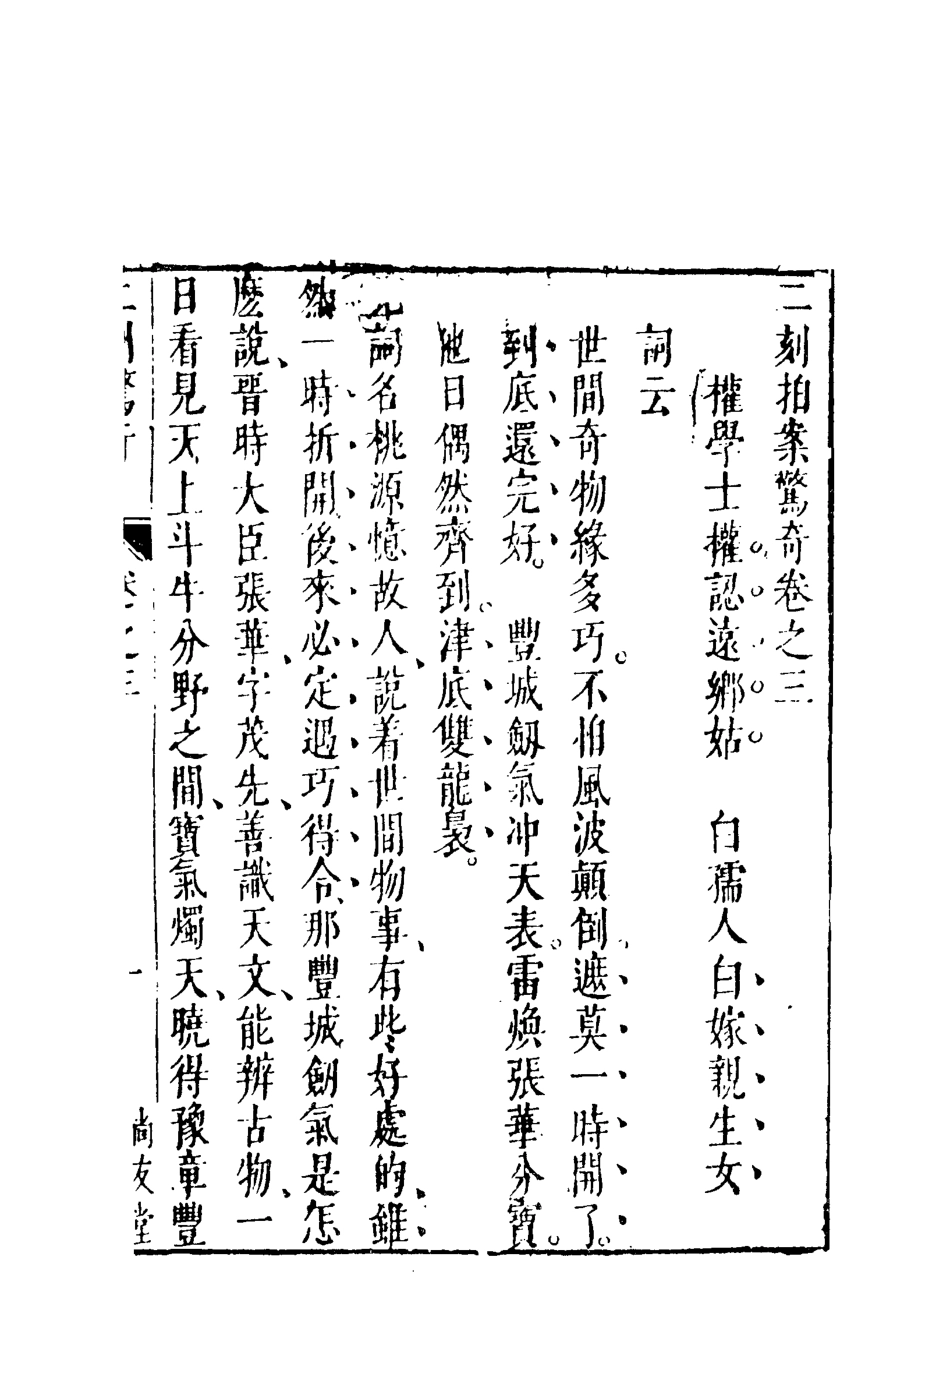 二刻拍案驚奇卷之三
權學士權認遠鄉姑　白孺人白嫁親生女
詞云
世間奇物緣多巧。不怕風波顛倒。遮莫一時開了。
到底還完好。　豐城劔氣冲天表。雷煥張華分寶。
他日偶然齊到。津底雙龍裊。
詞名桃源憶故人、說着世間物事、有些好處的、雖
然一時折開、後來必定遇巧得合、那豐城劔氣是怎
麽說、晋時大臣張華、字茂先、善識天文、能辨古物、一
日看見天上斗牛分野之間、寶氣燭天、曉得豫章豐
二刻驚奇　卷之三　一　尚友堂